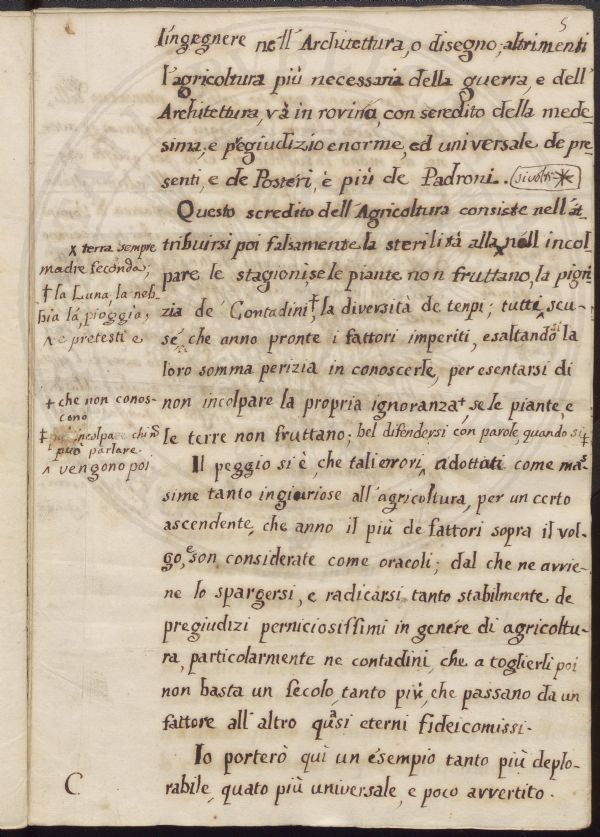 5
l'ingegnere nell'Architettura, o disegno; altrimenti
l'agricoltura più necessaria della guerra, e dell'
Architettura, và in rovina, con scredito della mede
sima, e pregiudizio enorme, ed universale de pre
senti, e de Posteri, e più de Padroni. (si volti *)
Questo scredito dell'Agricoltura consiste nell'at
tribuirsi poi falsamente la sterilità alla x nell incol
pare le stagioni, se le piante non fruttano, la pigri
zia de' Contadini, † la diversità de tenpi; tutti ^ scu-
se, che anno pronte i fattori imperiti, esaltando la
loro somma perizia in conoscerle, per esentarsi di
non incolpare la propria ignoranza +, se le piante, e
le terre non fruttano; bel difendersi con parole, quando si ‡
Il peggio si è, che tali errori ^ adottati come mas
sime tanto ingiuriose all'agricoltura, per un certo
ascendente, che anno il più de fattori sopra il vol-
go, e son considerate come oracoli; dal che ne avvie-
ne lo spargersi, e radicarsi tanto stabilmente de
pregiudizi perniciosissimi in genere di agricoltu-
ra, particolarmente ne contadini, che a toglierli poi
non basta un secolo, tanto più, che passano da un
fattore all'altro quasi eterni fideicomissi.
Io porterò qui un esempio tanto più deplo-
rabile, quato più universale, e poco avvertito.
x terra sempre
madre feconda;
† la Luna, la neb
bia la pioggia,
^ e pretesti e
+ che non conos-
cono
‡ ne incolpare chi nō
può parlare.
^ vengono poi
C